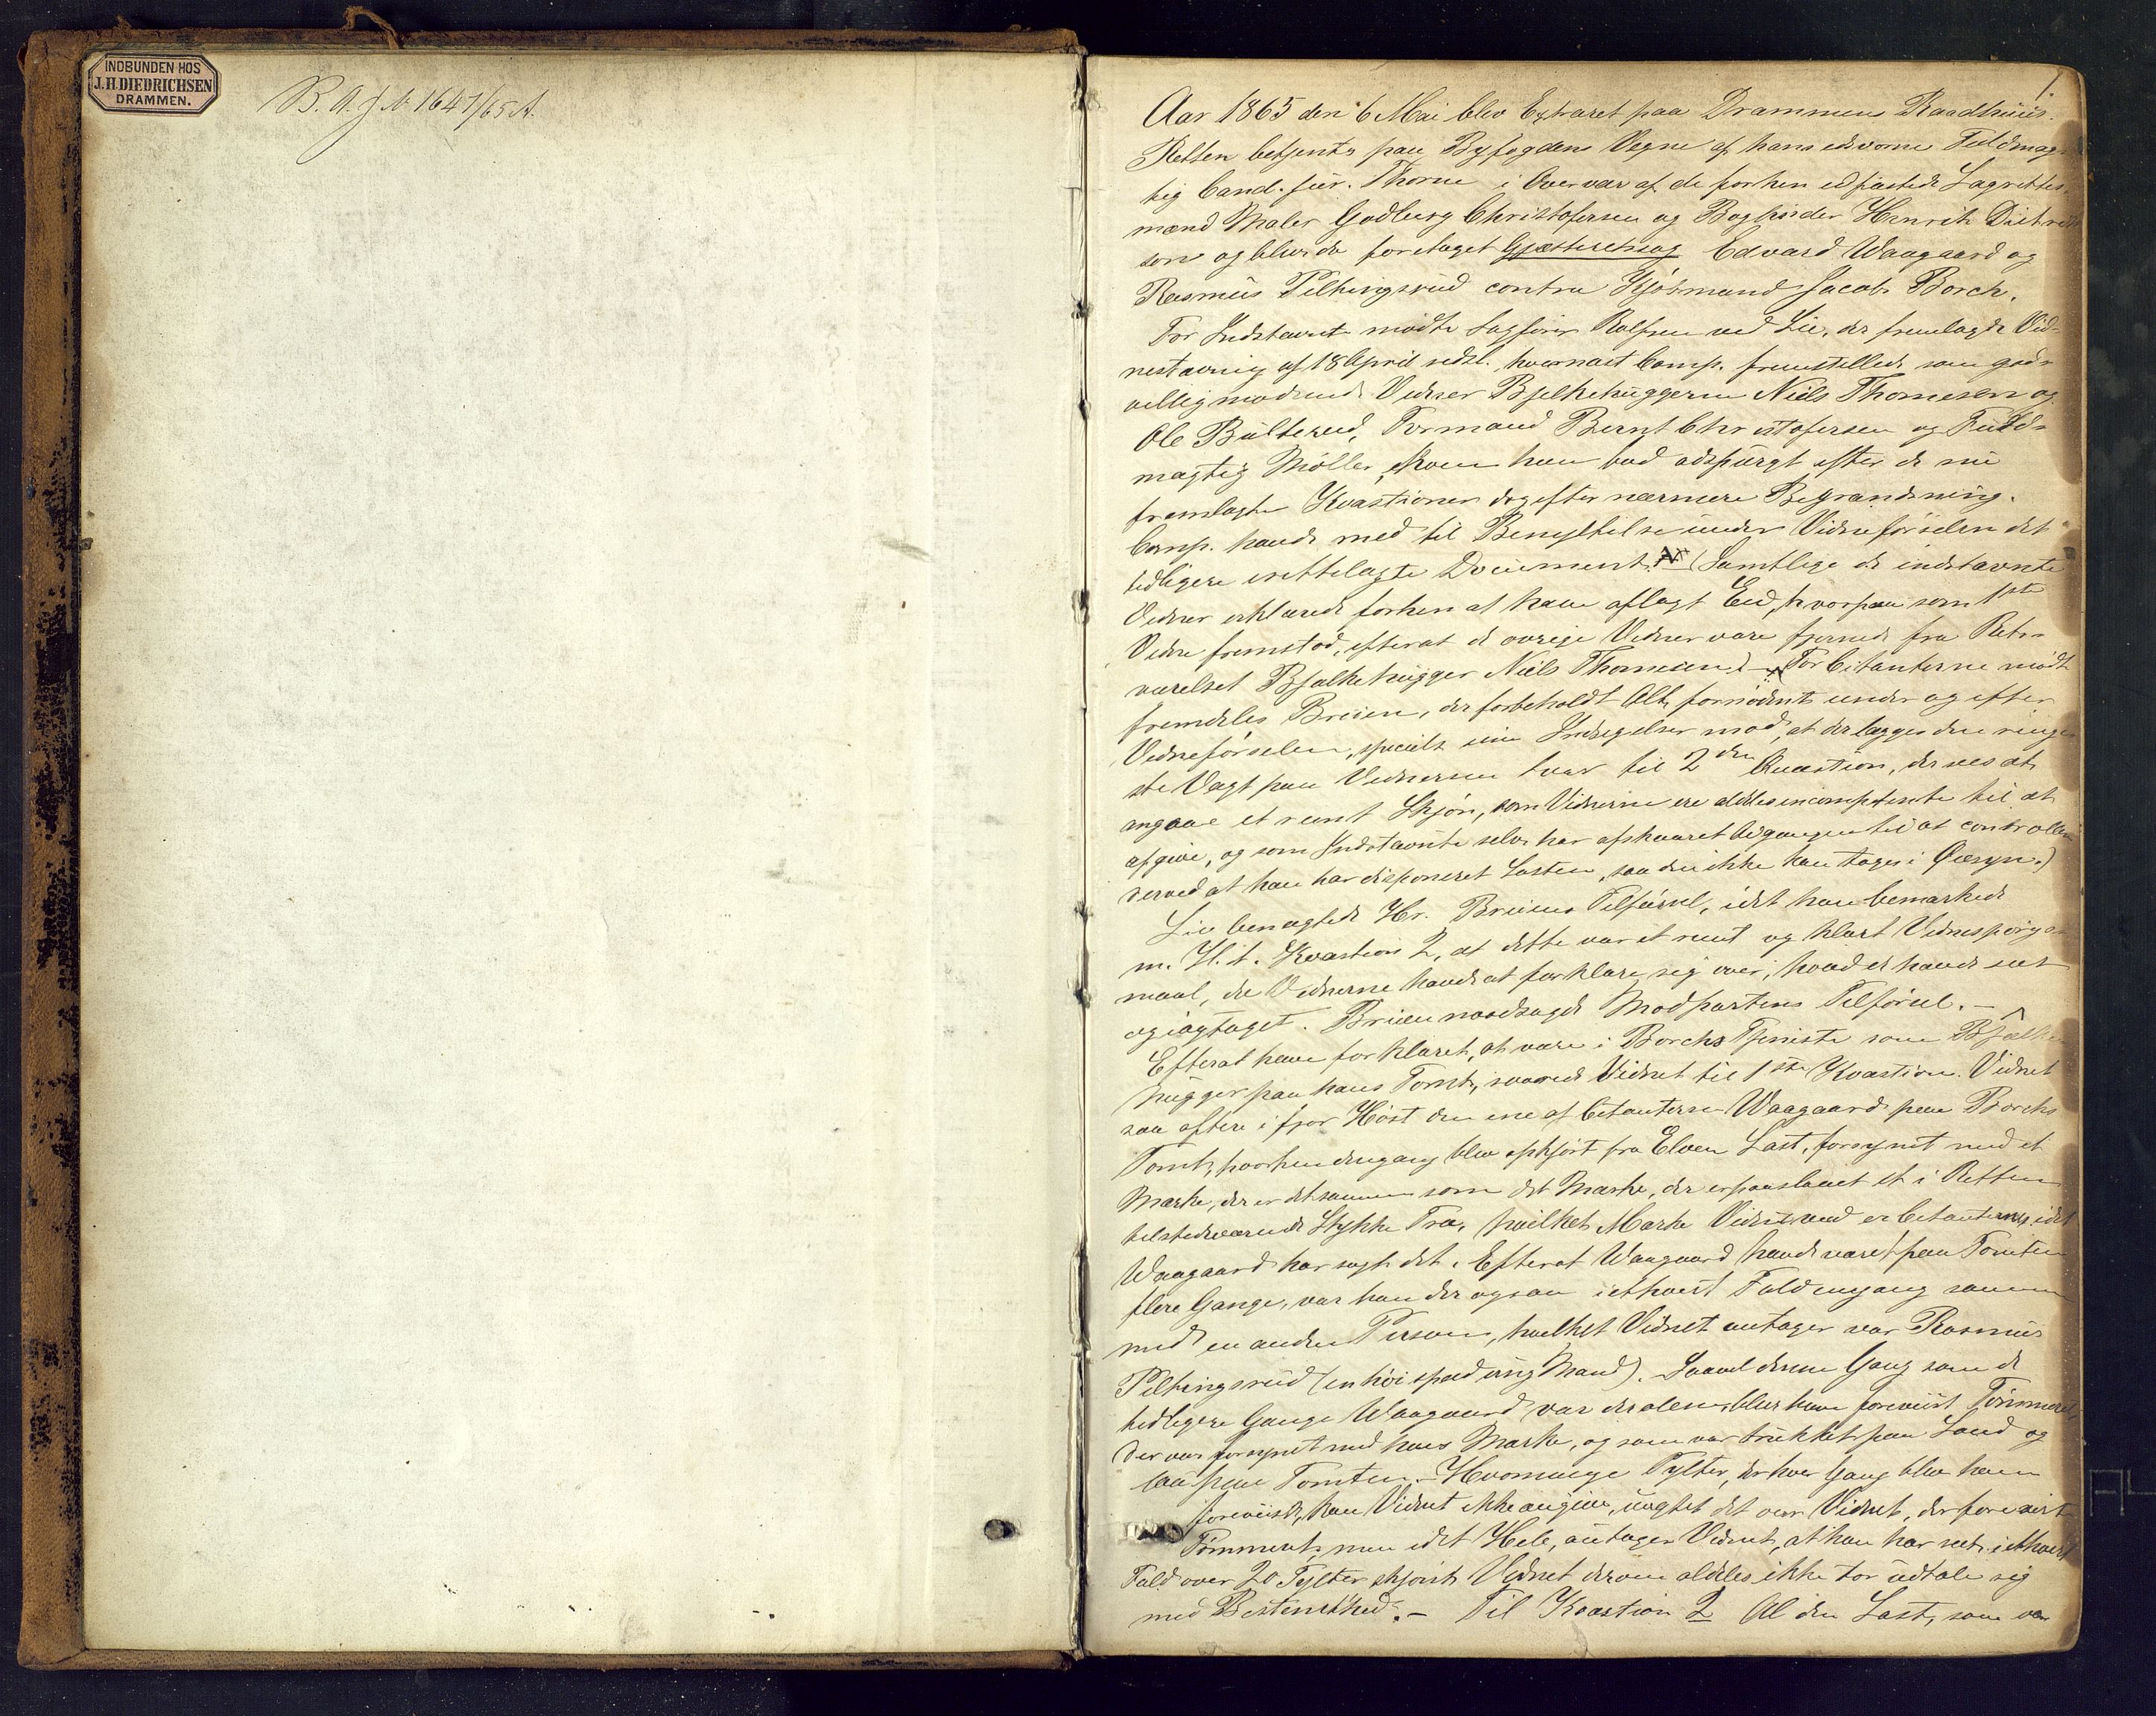 INDBUNDEN HOS
J. H. DIEDRICHSEN
DRAMMEN.
B. A. J. № 1647/65 A.
1.
Aar 1865 den 6 Mai blev Extraret paa Drammens Raadhuus.
Retten betjent paa Byfogdens Vegne af hans edsvorne Fuldmæg-
tig Cand. jur. Thorne i Overvær af de forhen edfæstede Lagrettes-
mænd Maler Godberg Christofersen og Bogbinder Henrik Diedrich
sen og blev da foretaget Gjæsteretssag Edvard Waagaard og
Rasmus Piltingsrud contra Kjøbmand Jacob Borch.
For Indstævnte mødte Sagfører Rolfsen ved Lie, der fremlagde Vid-
nestævning af 18 April sidstl. hvornæst Comp. fremstillede som god-
villig mødende Vidner Bjelkehuggerne Niels Thomesen og
Ole Bulterud, Formand Bernt Christofersen og Fuld-
mægtig Møller, hvem han bad adspurgt efter de nu
fremlagte Kvæstioner dog efter nærmere Begrændsning.
Comp. havde med til Benyttelse under Vidneførselen det
tidligere irettelagte Document. (Samtlige de indstævnte
Vidner erklærede forhen at have aflagt Eed, hvorpaa som 1ste
Vidne fremstod, efterat de øvrige Vidner vare fjernede fra Rets-
værelset Bjælkehugger Niels Thomesen) - For Citanterne mødte
fremdeles Breien, der forbeholdt Alt fornødent under og efter
Vidneførselen, specielt sine Indsigelser mod, at der lægges den ringe
ste Vægt paa Vidnernes Svar til 2den Qvæstion, der vil at
angaae et reent Skjøn, som Vidnerne ere aldeles incompetente til at
afgive, og som Indstævnte selv har afskaaret Adgangen til at controllere
derved at han har disponeret Lasten, saa den ikke kan tages i Øiesyn.)
Lie benægtede Hr. Breiens Tilførsel, idet han bemærkede
m. H. t. Kvæstion 2, at dette var et reent og klart Vidnespørgs
maal, da Vidnerne havde at forklare sig over, hvad de havde seet
og iagttaget. Breien modsagde Modpartens Tilførsel. -
Efterat have forklaret, at være i Borchs Tjeneste som Bjælke
hugger paa hans Tomt, svarede Vidnet til 1ste Kvæstion. Vidnet
saa oftere i fjor Høst den ene af Citanterne Waagaard paa Borchs
Tomt, hvorhen dengang blev opkjørt fra Elven Last, forsynet med et
Mærke, der er det samme som det Mærke, der er paaslaaet et i Retten
tilstedeværende Stykke Træ, hvilket Mærke Vidnet ved er Citanternes, idet
Waagaard har sagt det. Efterat Waagaard havde været paa Tomten
flere Gange, var han der ogsaa i ethvert Fald engang sammen
med en anden Person, hvilket Vidnet antager var Rasmus
Piltingsrud (en høi spæd ung Mand). Saavel denne Gang som de
tidligere Gange Waagaard var der alene, blev ham foreviist Tømmeret
der var forsynet med hans Mærke, og som var trukket paa Land og
laa paa Tomten. - Hvormange Tylter, der hver Gang blev ham
foreviist, kan Vidnet ikke angive, uagtet det var Vidnet, der foreviste
Tømmeret, men i det Hele, antager Vidnet, at han har seet i ethvert
Fald over 20 Tylter skjønt Vidnet derom aldeles ikke tør udtale sig
med Bestemthed. - Til Kvæstion 2 Al den Last, som var